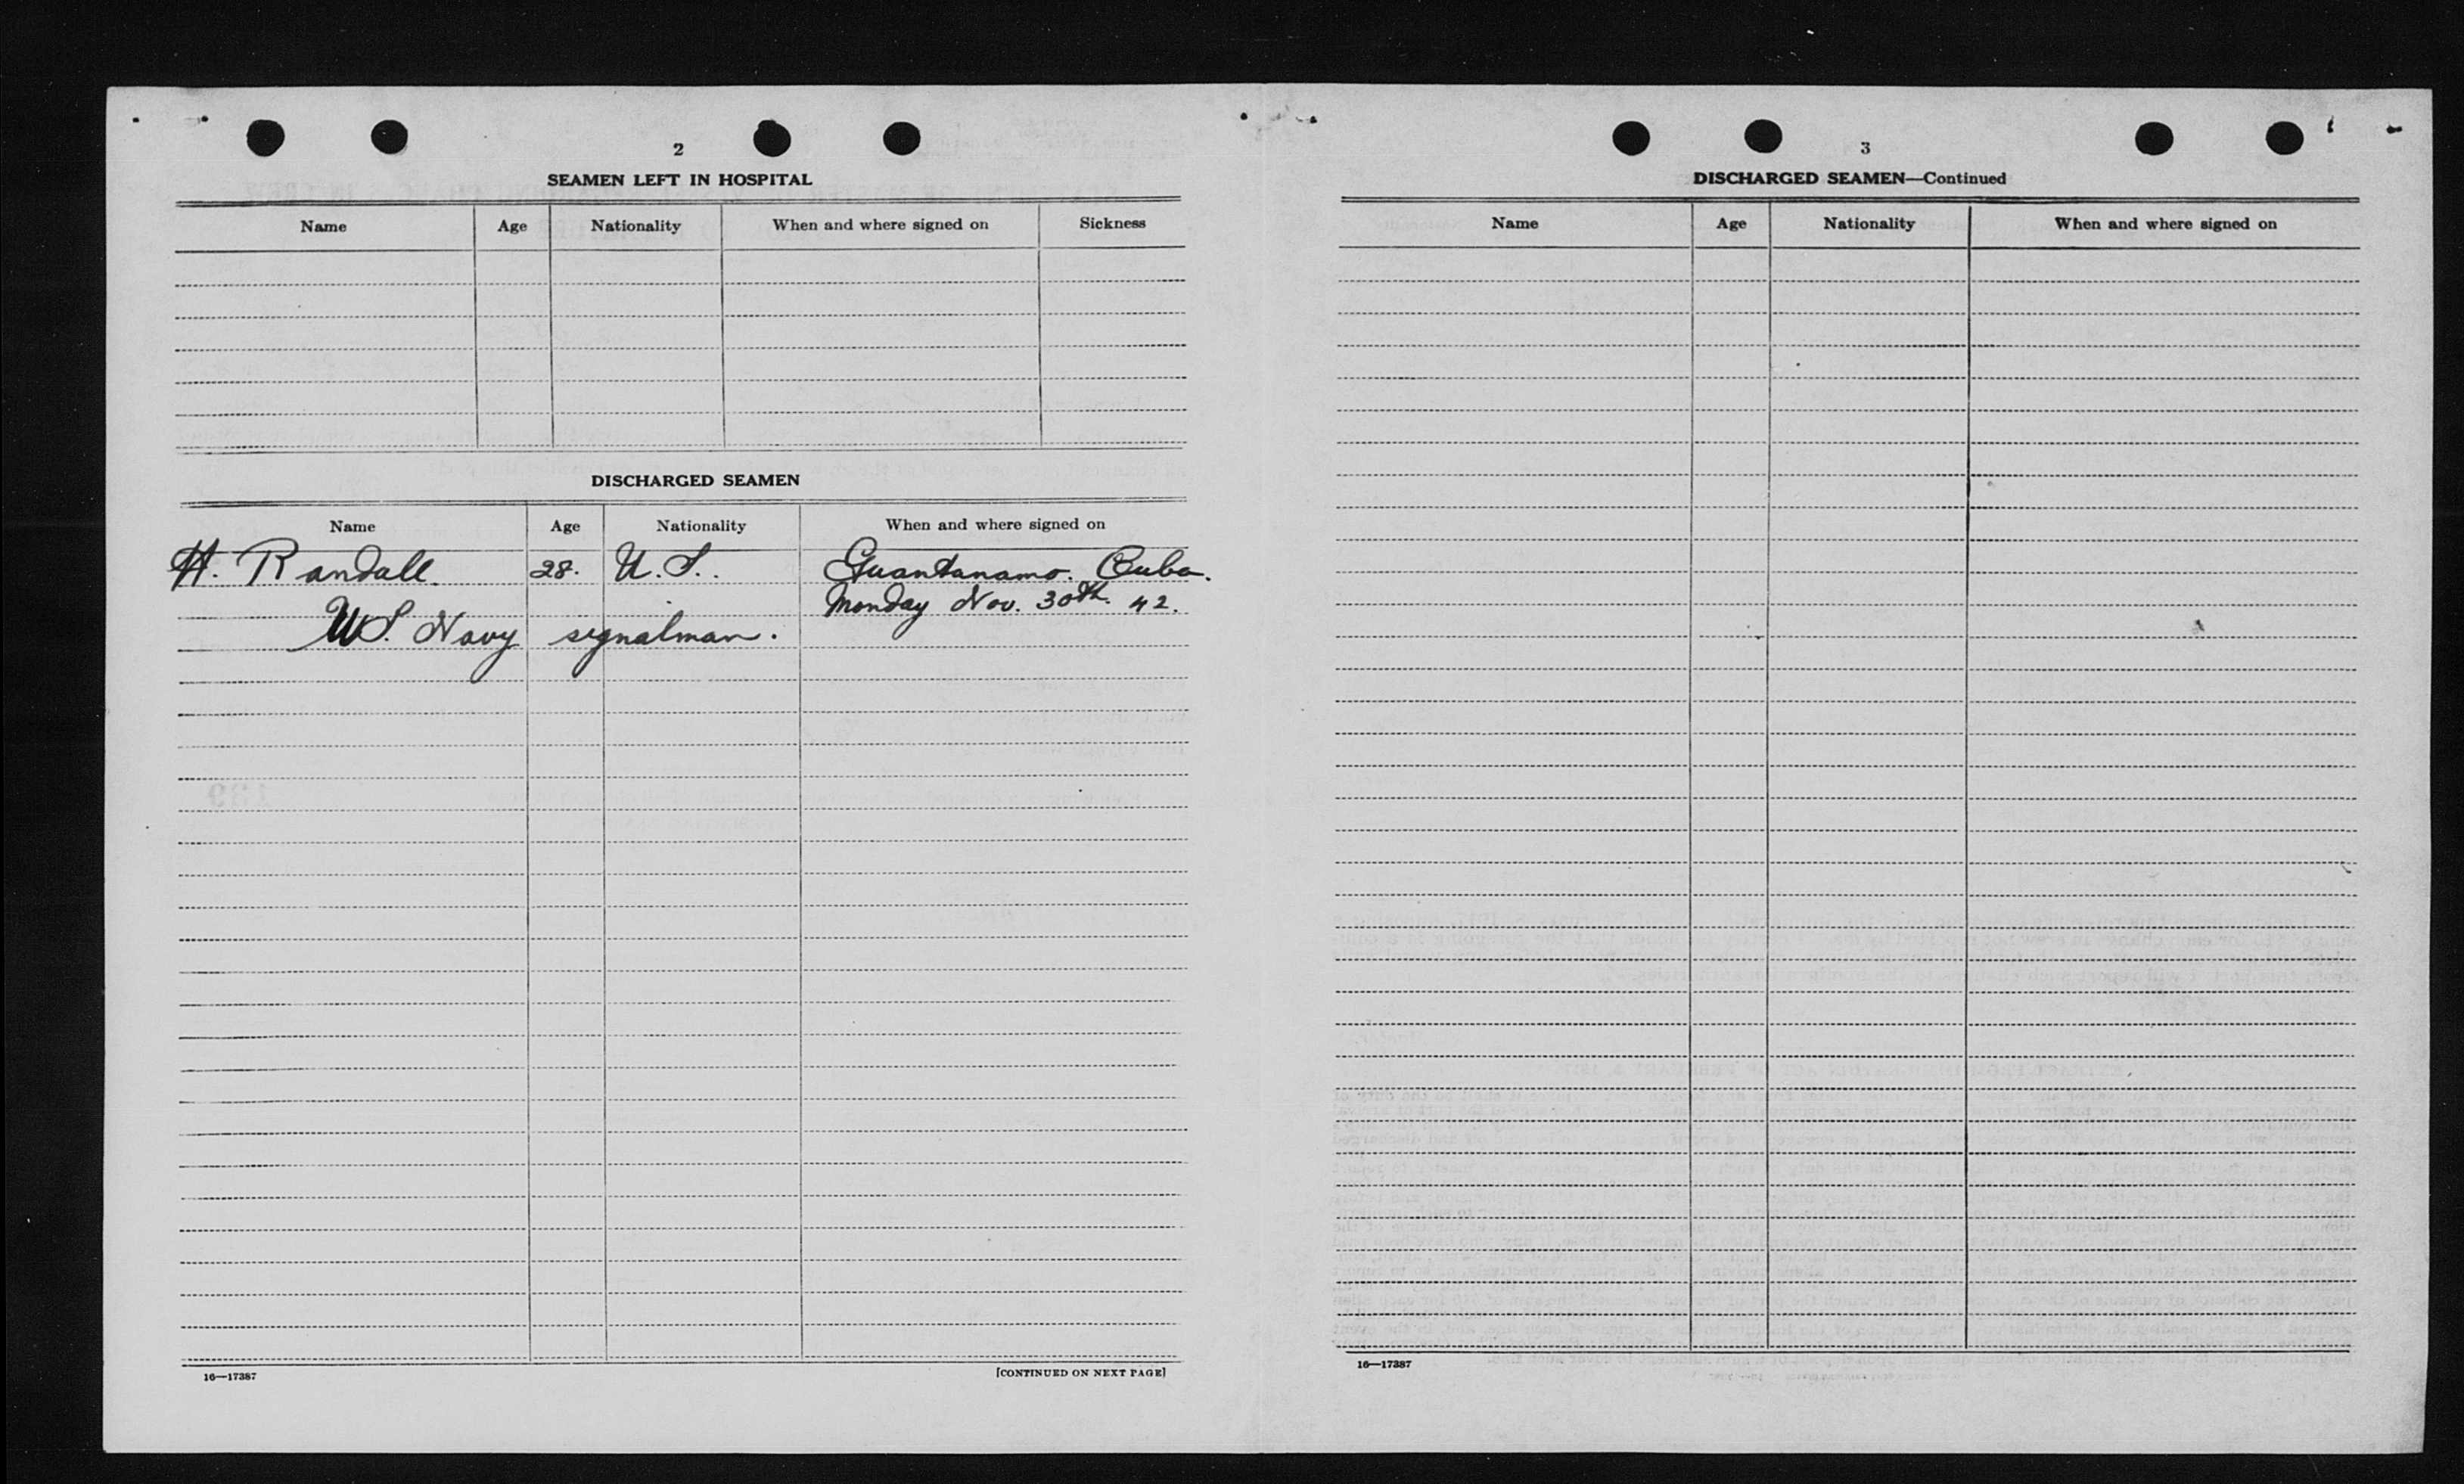 2
SEAMEN LEFT IN HOSPITAL
Name Age Nationality When and where signed on Sickness
DISCHARGED SEAMEN
Name Age Nationality When and where signed on
H. Randall. 28. U.S. Guantanamo. Cuba.
Monday Nov. 30th. 42.
US. Navy signalman.
16—17387 [CONTINUED ON NEXT PAGE]
3
DISCHARGED SEAMEN—Continued
Name Age Nationality When and where signed on
16—17387